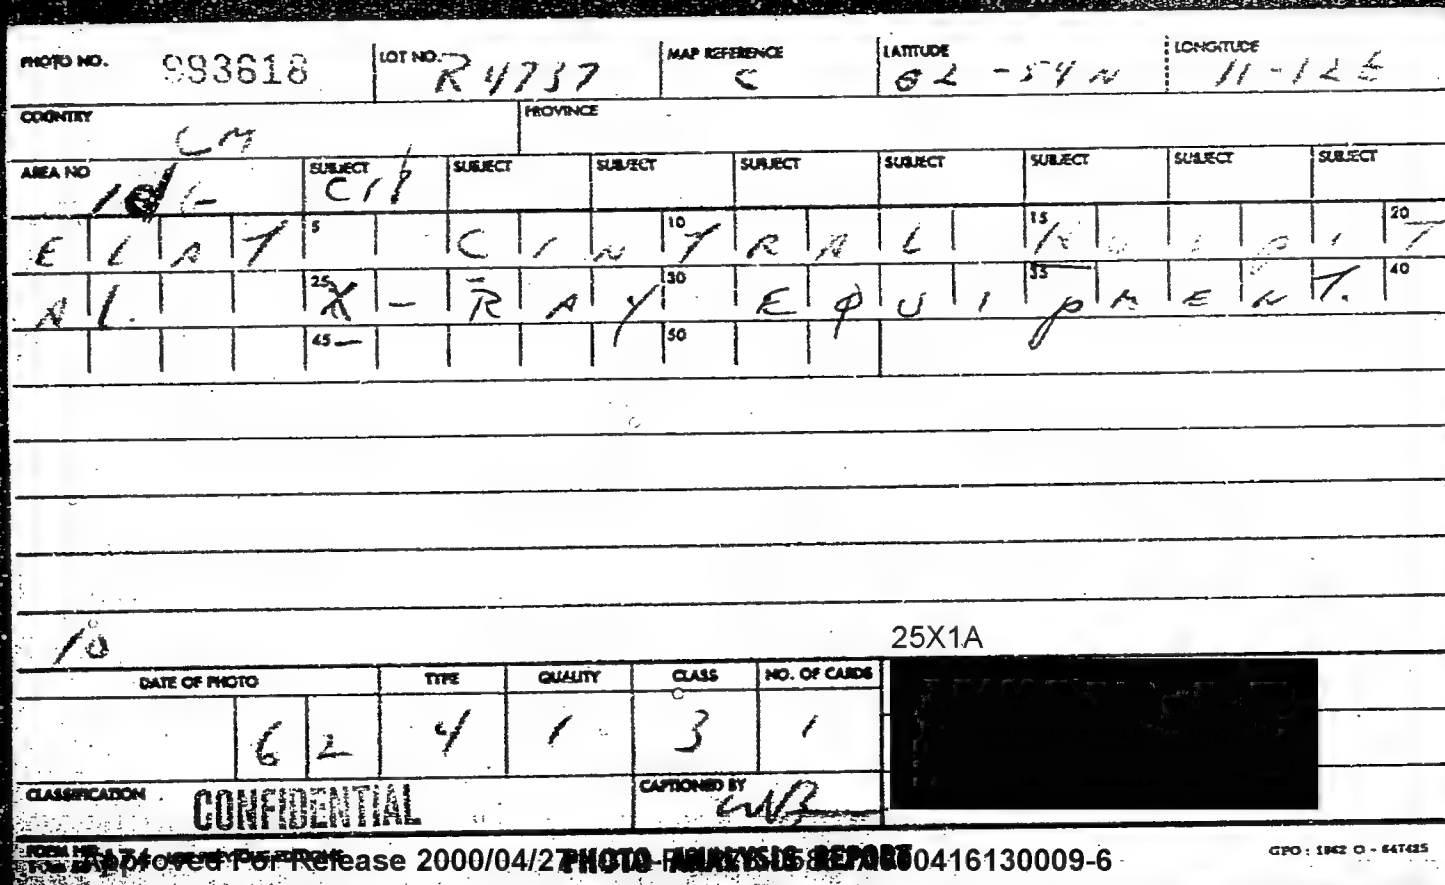 PHOTO NO. 993618 LOT NO. R4737 MAP REFERENCE C LATITUDE 02-54N LONGITUDE 11-12E
COUNTRY CM PROVINCE
AREA NO SUBJECT SUBJECT SUBJECT SUBJECT SUBJECT SUBJECT SUBJECT SUBJECT
ELAT 5 CENTRAL 10 15 HOSPIT 20
AL. 25 X-RAY 30 EQUIPMENT. 35 40
45 50
10 25X1A
DATE OF PHOTO TYPE QUALITY CLASS NO. OF CARDS
62 4 1 3 1
CLASSIFICATION CONFIDENTIAL CAPTIONED BY
Approved For Release 2000/04/27 PHOTO ANALYSIS REPORT 00416130009-6 GPO : 1962 O - 647425